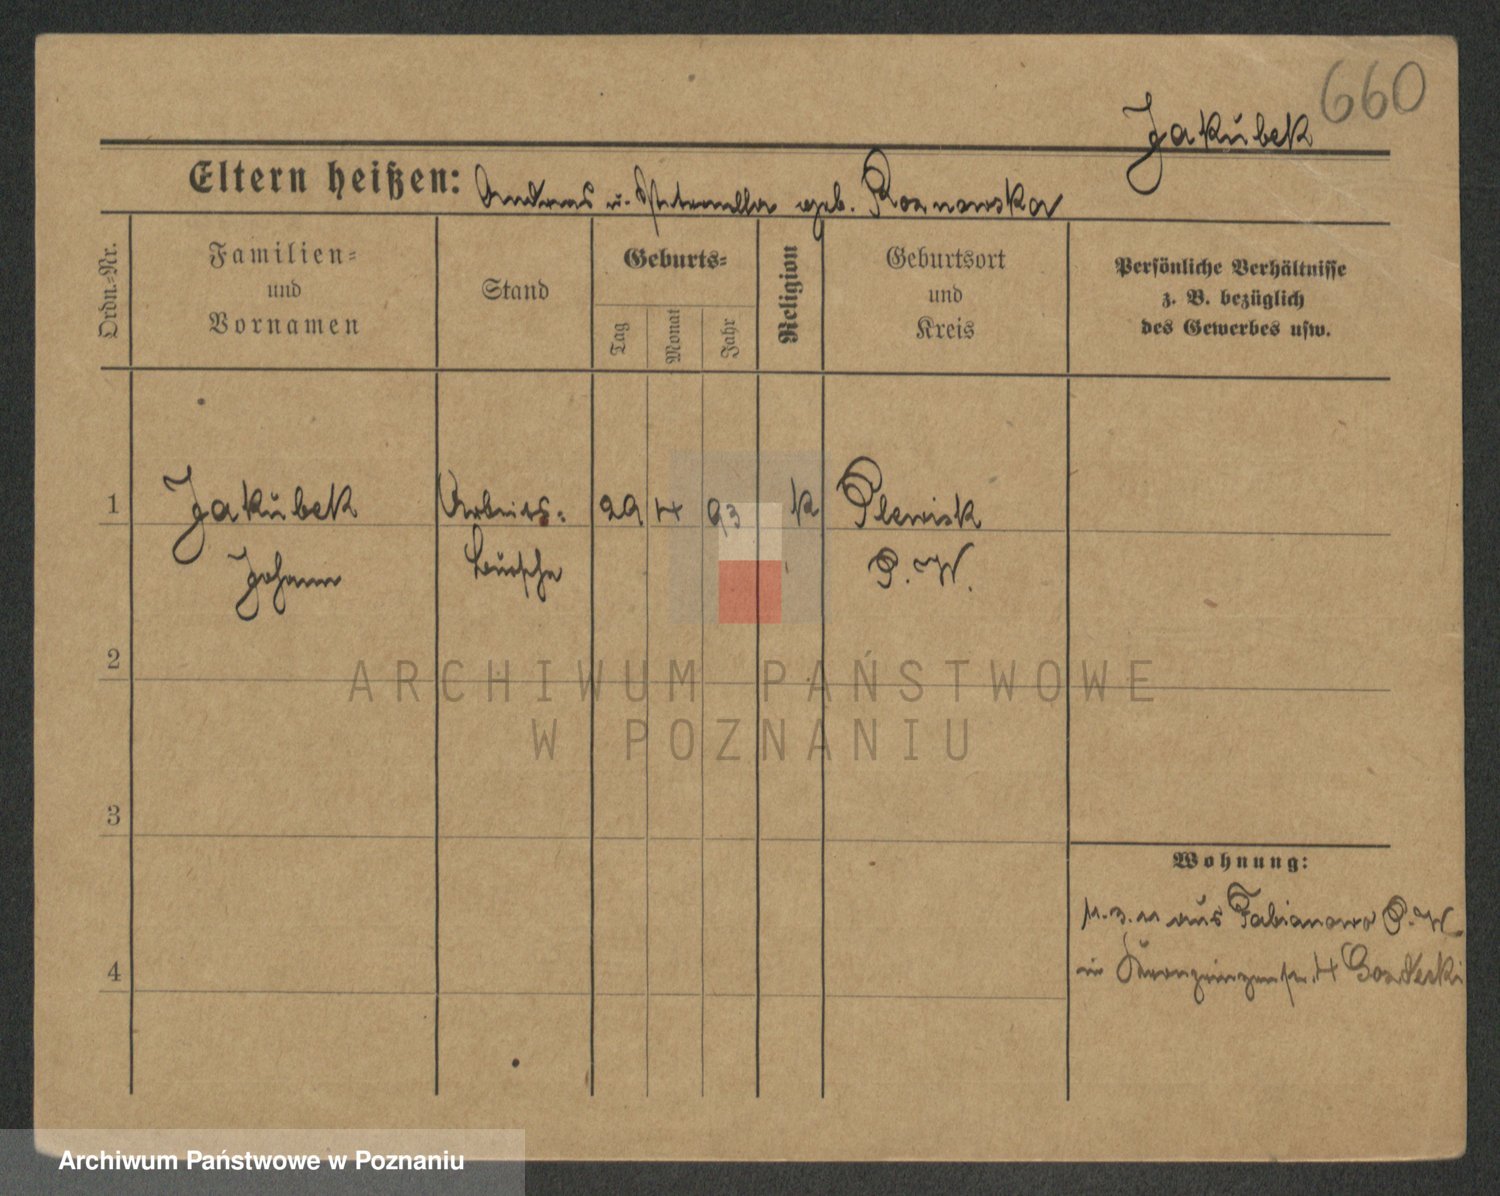 660
Jakubek
Eltern heißen: Andreas u. Petronella geb. Roznowska
Ordn.-Nr.
Familien-
und
Vornamen
Stand
Geburts-
Tag
Monat
Jahr
Religion
Geburtsort
und
Kreis
Persönliche Verhältnisse
z. B. bezüglich
des Gewerbes usw.
1 Jakubek Arbeits- 29 4 93 k Plewisk
Johann bursche P. W.
2
ARCHIWUM PAŃSTWOWE
W POZNANIU
3
Wohnung:
11. 3. 11 aus Fabianowo P. W.
4
in Kronprinzenstr. 4
Archiwum Państwowe w Poznaniu